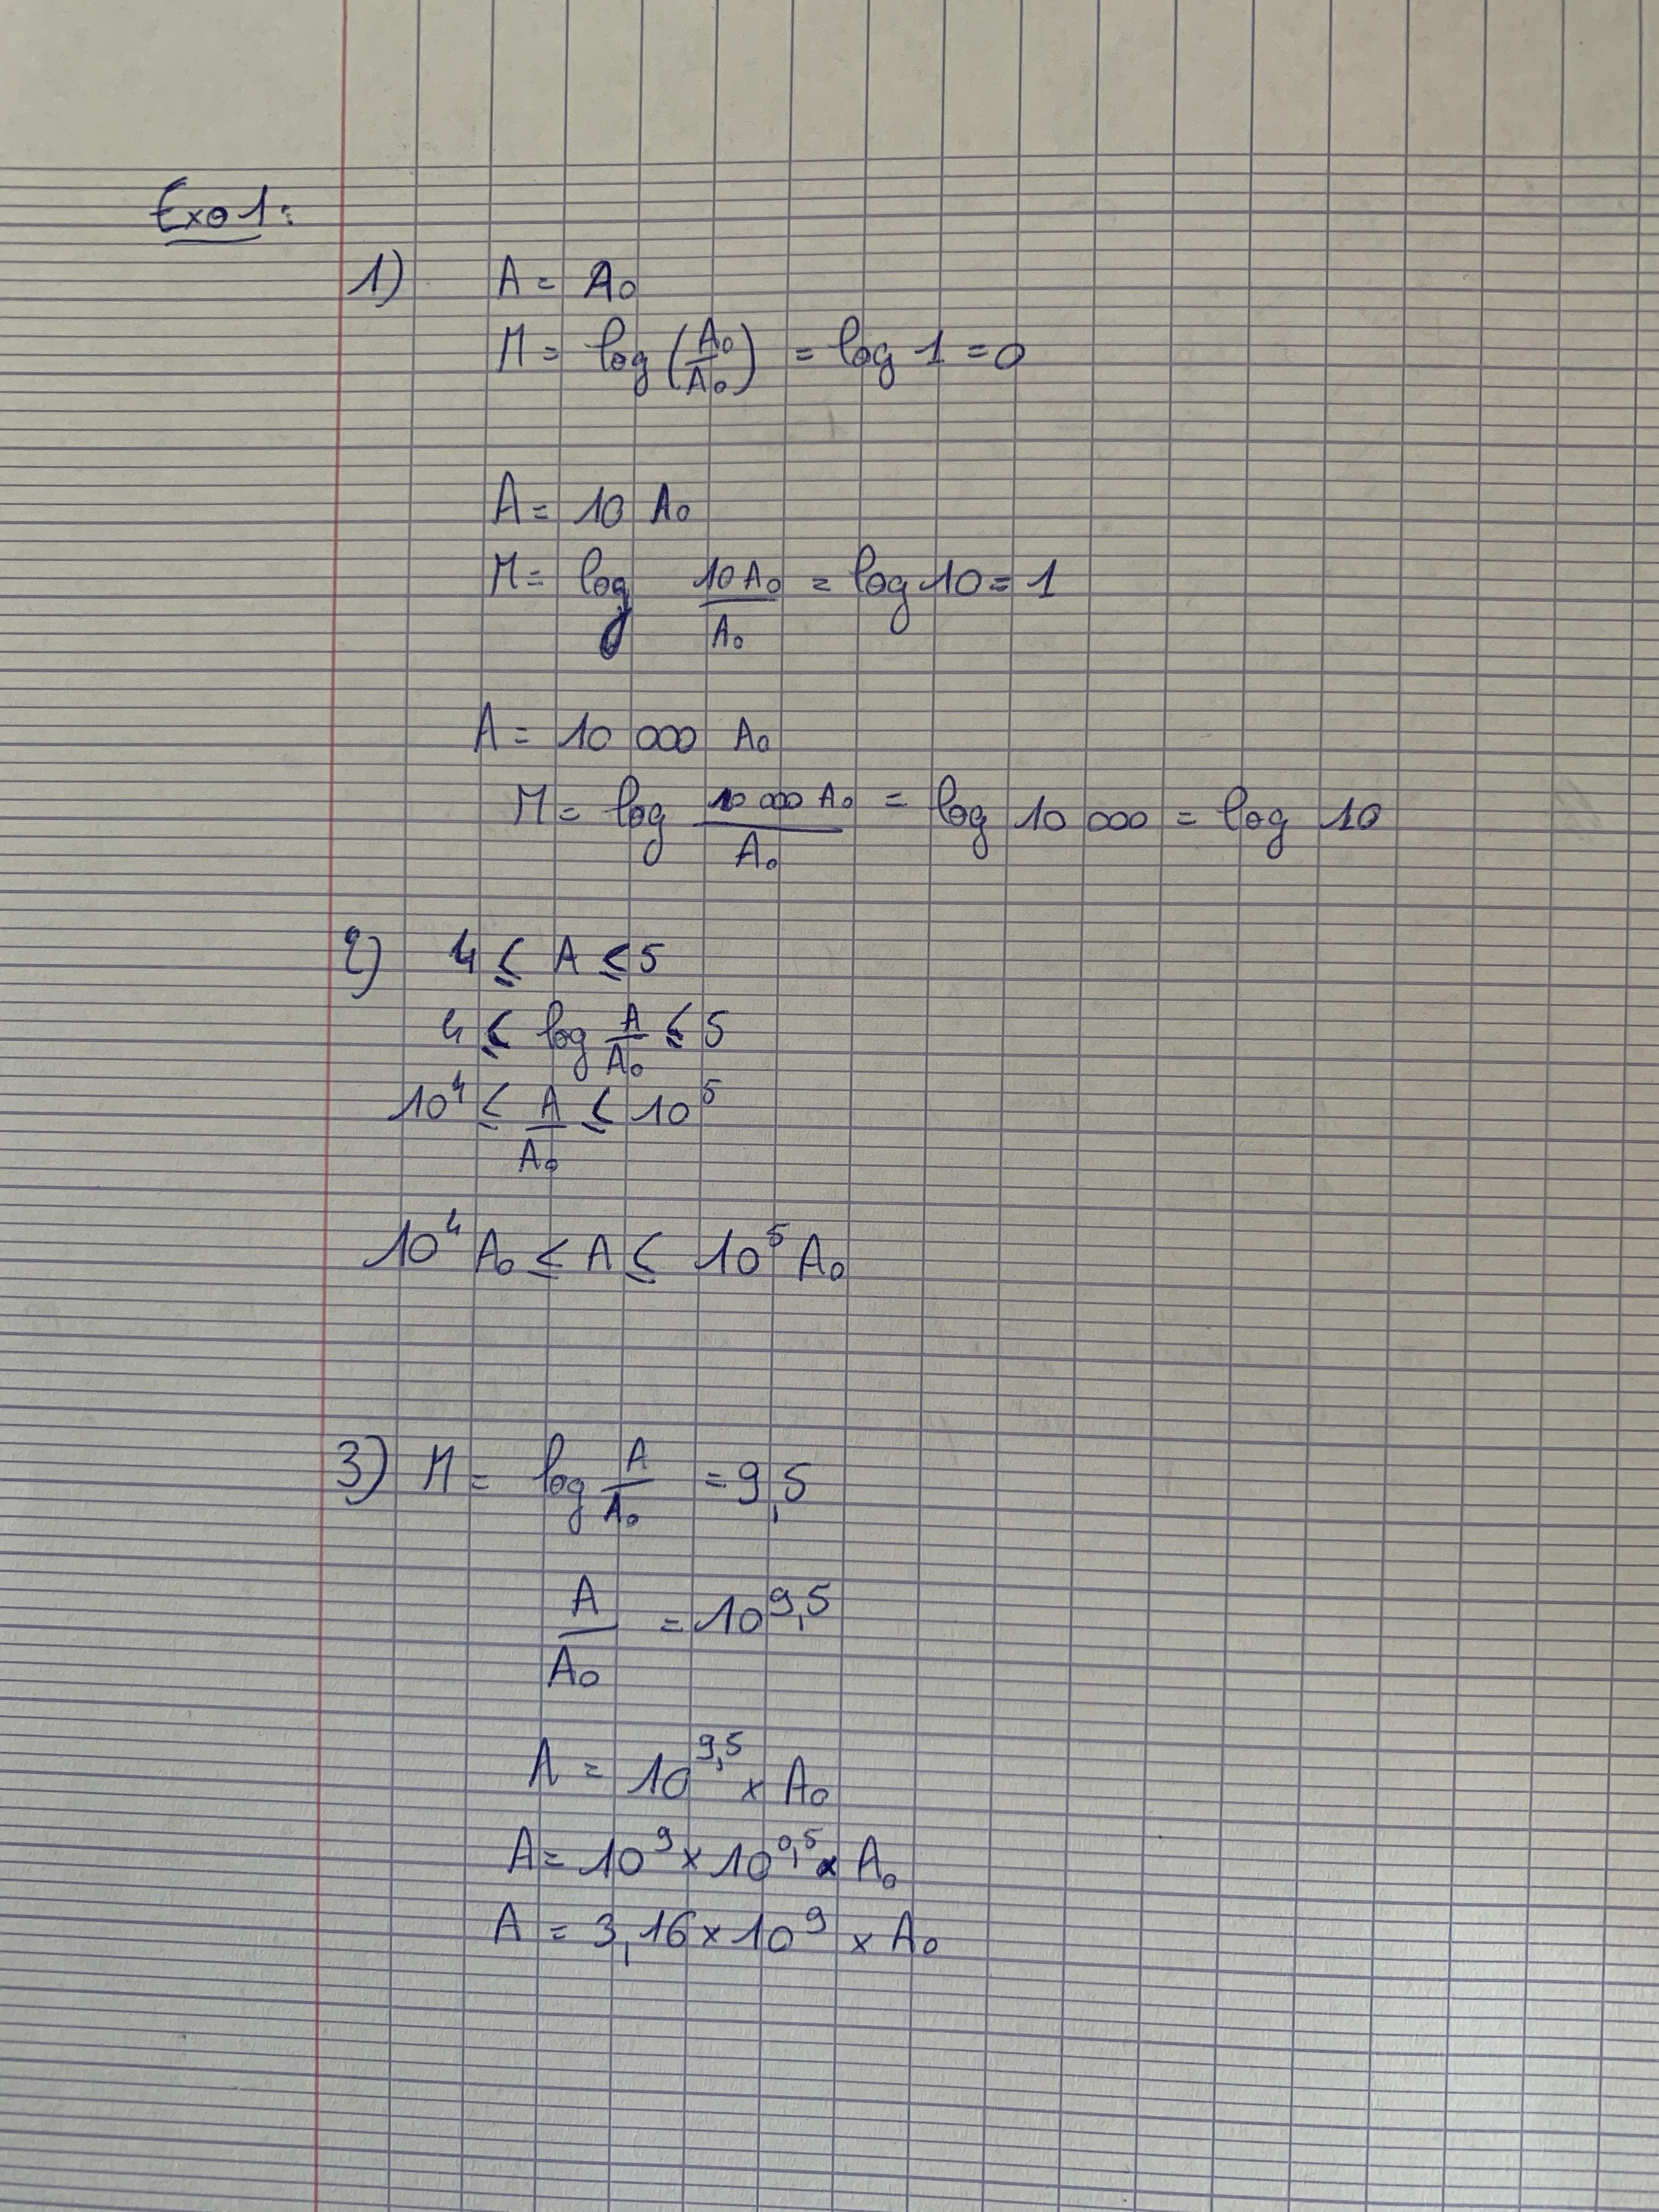 Exo 1:
1) A = A₀
M = log (A₀/A₀) = log 1 = 0
A = 10 A₀
M = log 10A₀/A₀ = log 10 = 1
A = 10 000 A₀
M = log 10 000 A₀/A₀ = log 10 000 = log 10
2) 4 ≤ A ≤ 5
4 ≤ log A/A₀ ≤ 5
10⁴ ≤ A/A₀ ≤ 10⁵
10⁴ A₀ ≤ A ≤ 10⁵ A₀
3) M = log A/A₀ = 9,5
A/A₀ = 10^9,5
A = 10^9,5 × A₀
A = 10⁹ × 10^0,5 × A₀
A = 3,16 × 10⁹ × A₀